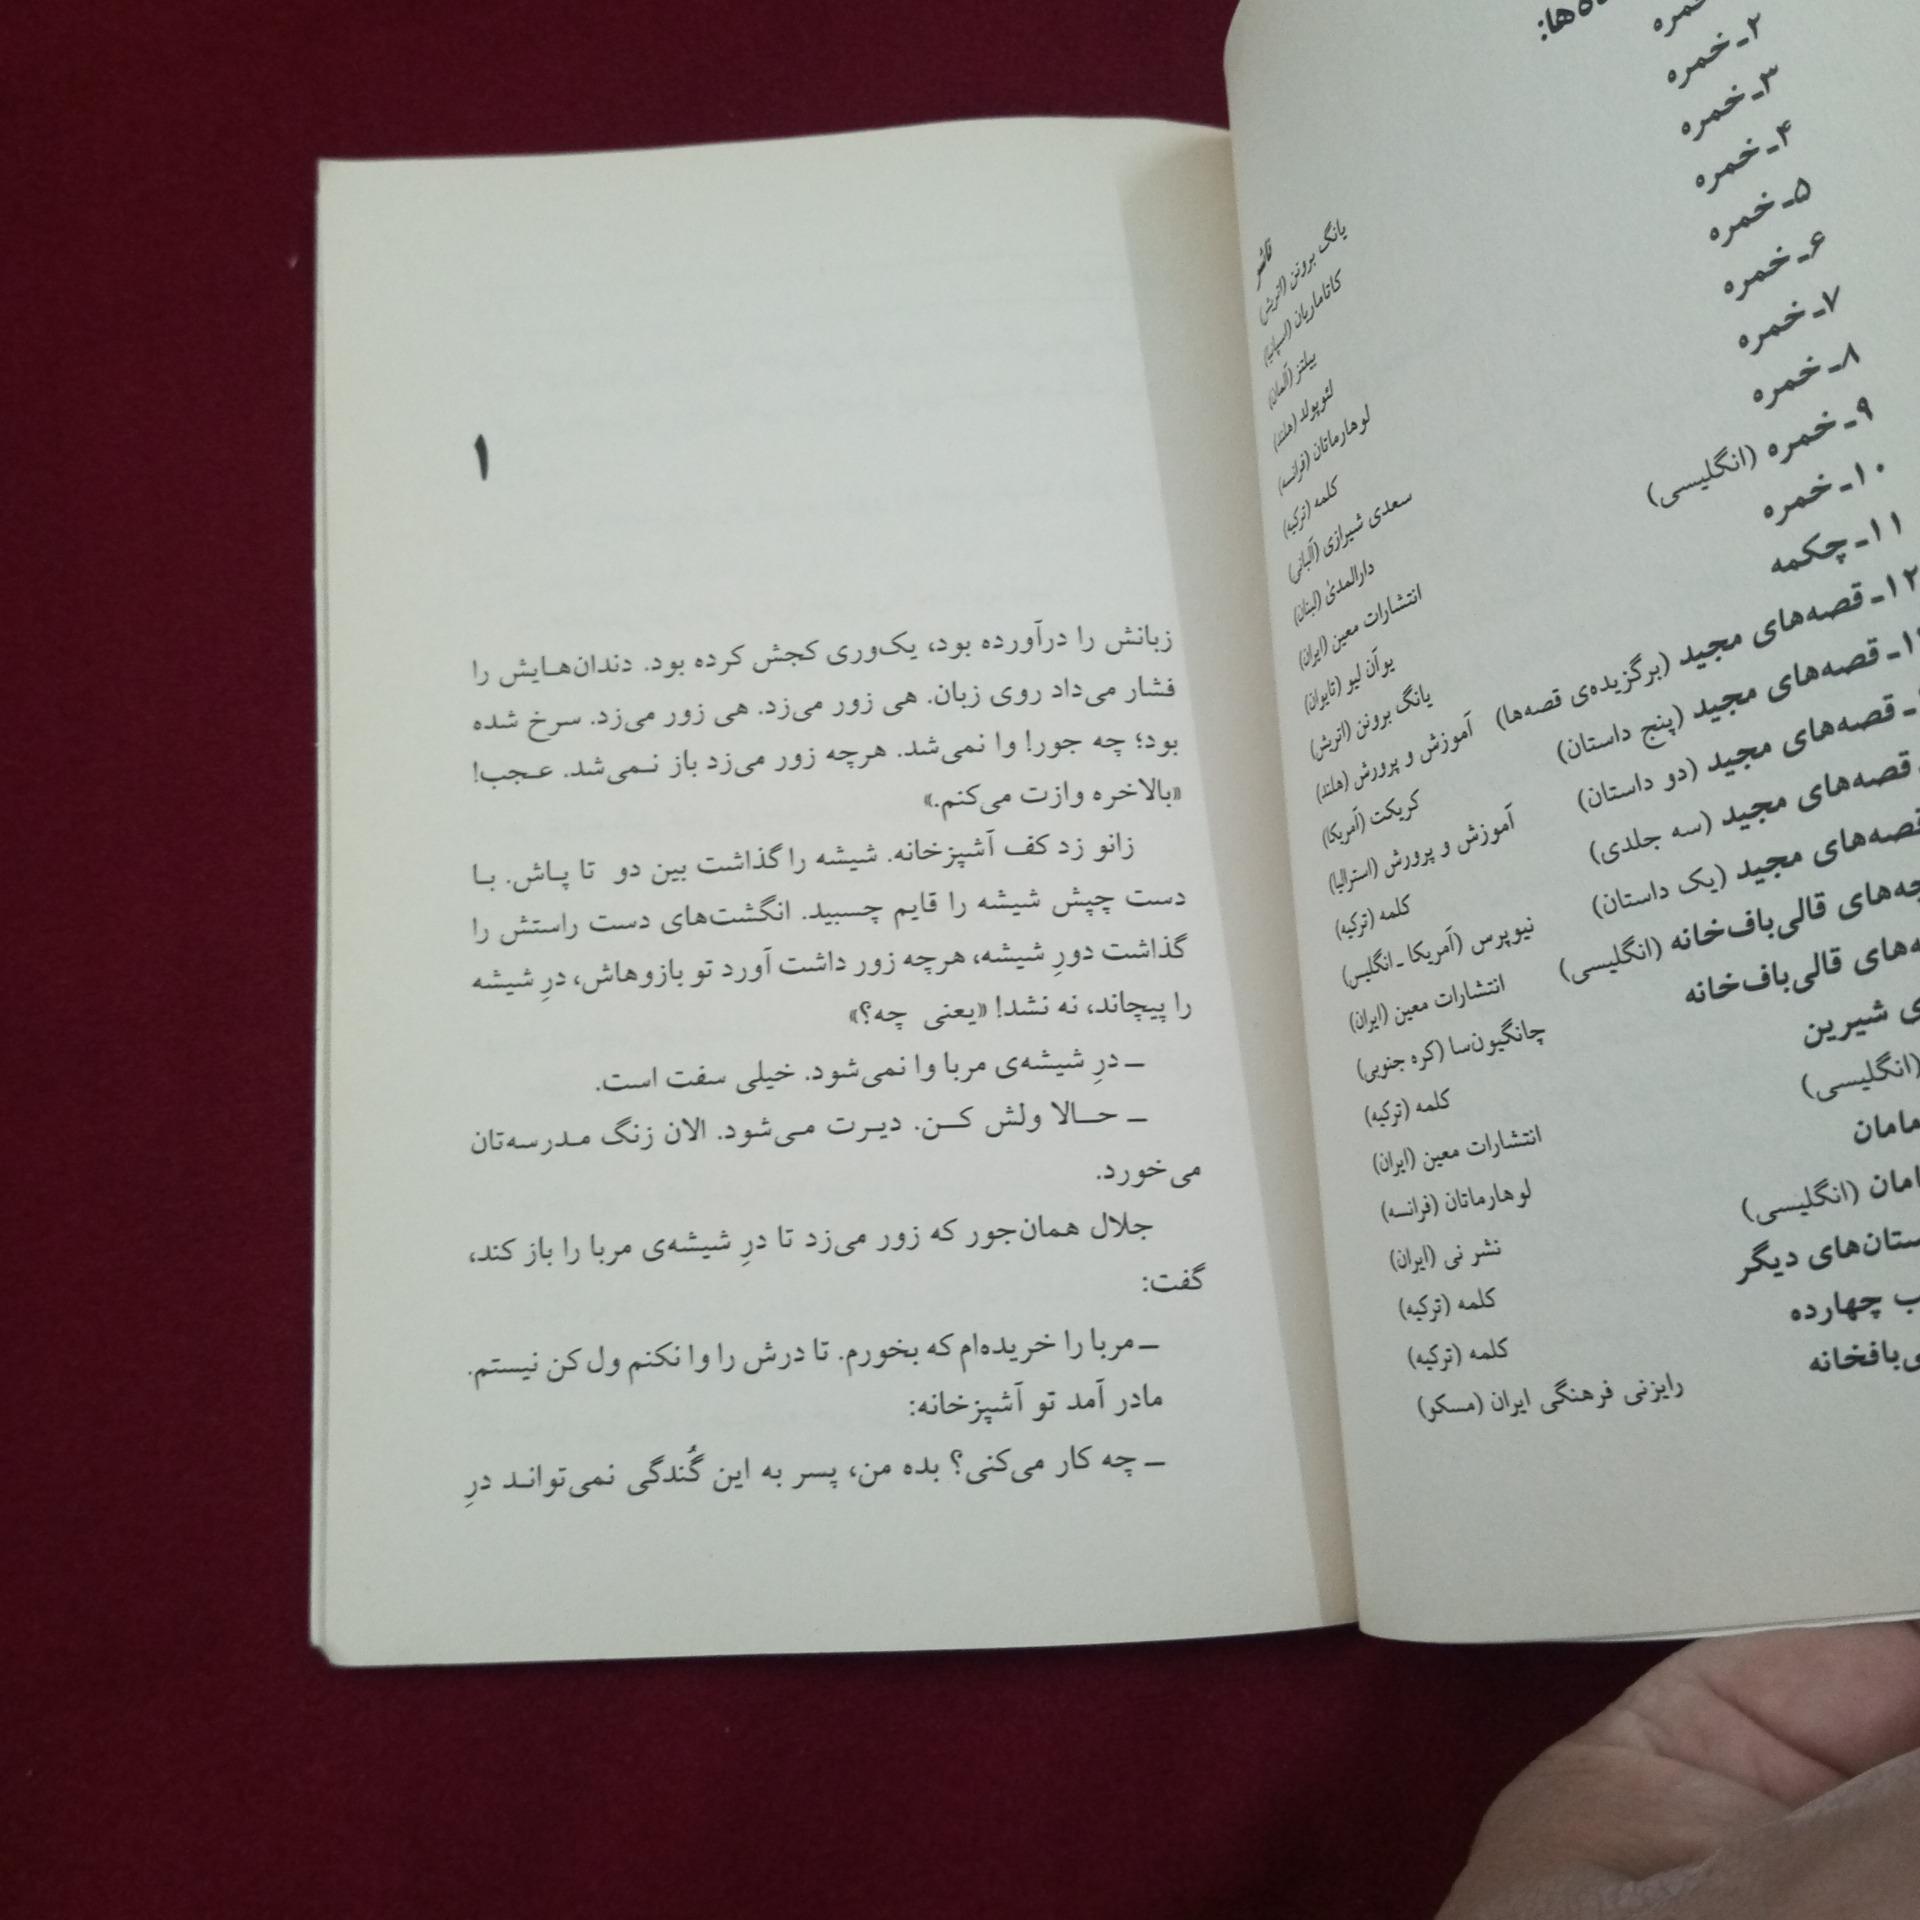 ۲ـ خمره
۳ـ خمره
۴ـ خمره
۵ـ خمره
۶ـ خمره
۷ـ خمره
۸ـ خمره
۹ـ خمره (انگلیسی)
۱۰ـ خمره
۱۱ـ چکمه
۱۲ـ قصه‌های مجید (برگزیده‌ی قصه‌ها)
قصه‌های مجید (پنج داستان)
قصه‌های مجید (دو داستان)
قصه‌های مجید (سه جلدی)
قصه‌های مجید (یک داستان)
قالی‌باف‌خانه (انگلیسی)
قالی‌باف‌خانه
شیرین
(انگلیسی)
(انگلیسی)
دیگر
چهارده
ناشر
یانگ برونن (اتریش)
کاتاماریان (اسپانیا)
بیلتز (آلمان)
لئوپولد (هلند)
لوهارماتان (فرانسه)
کلمه (ترکیه)
سعدی شیرازی (آلبانی)
دارالمدی (لبنان)
انتشارات معین (ایران)
یوآن لیو (تایوان)
یانگ برونن (اتریش)
آموزش و پرورش (هلند)
کریکت (آمریکا)
آموزش و پرورش (استرالیا)
کلمه (ترکیه)
نیوپرس (آمریکا ـ انگلیس)
انتشارات معین (ایران)
چانگیون‌سا (کره جنوبی)
کلمه (ترکیه)
انتشارات معین (ایران)
لوهارماتان (فرانسه)
نشر نی (ایران)
کلمه (ترکیه)
کلمه (ترکیه)
رایزنی فرهنگی ایران (مسکو)
۱
زبانش را درآورده بود، یک‌وری کجش کرده بود. دندان‌هایش را
فشار می‌داد روی زبان. هی زور می‌زد. هی زور می‌زد. سرخ شده
بود؛ چه جور! وا نمی‌شد. هرچه زور می‌زد باز نمی‌شد. عجب!
«بالاخره وازت می‌کنم.»
زانو زد کف آشپزخانه. شیشه را گذاشت بین دو تا پاش. با
دست چپش شیشه را قایم چسبید. انگشت‌های دست راستش را
گذاشت دورِ شیشه، هرچه زور داشت آورد تو بازوهاش، درِ شیشه
را پیچاند، نه نشد! «یعنی چه؟»
ـ درِ شیشه‌ی مربا وا نمی‌شود. خیلی سفت است.
ـ حالا ولش کن. دیرت می‌شود. الان زنگ مدرسه‌تان
می‌خورد.
جلال همان‌جور که زور می‌زد تا درِ شیشه‌ی مربا را باز کند،
گفت:
ـ مربا را خریده‌ام که بخورم. تا درش را وا نکنم ول کن نیستم.
مادر آمد تو آشپزخانه:
ـ چه کار می‌کنی؟ بده من، پسر به این گُندگی نمی‌تواند درِ